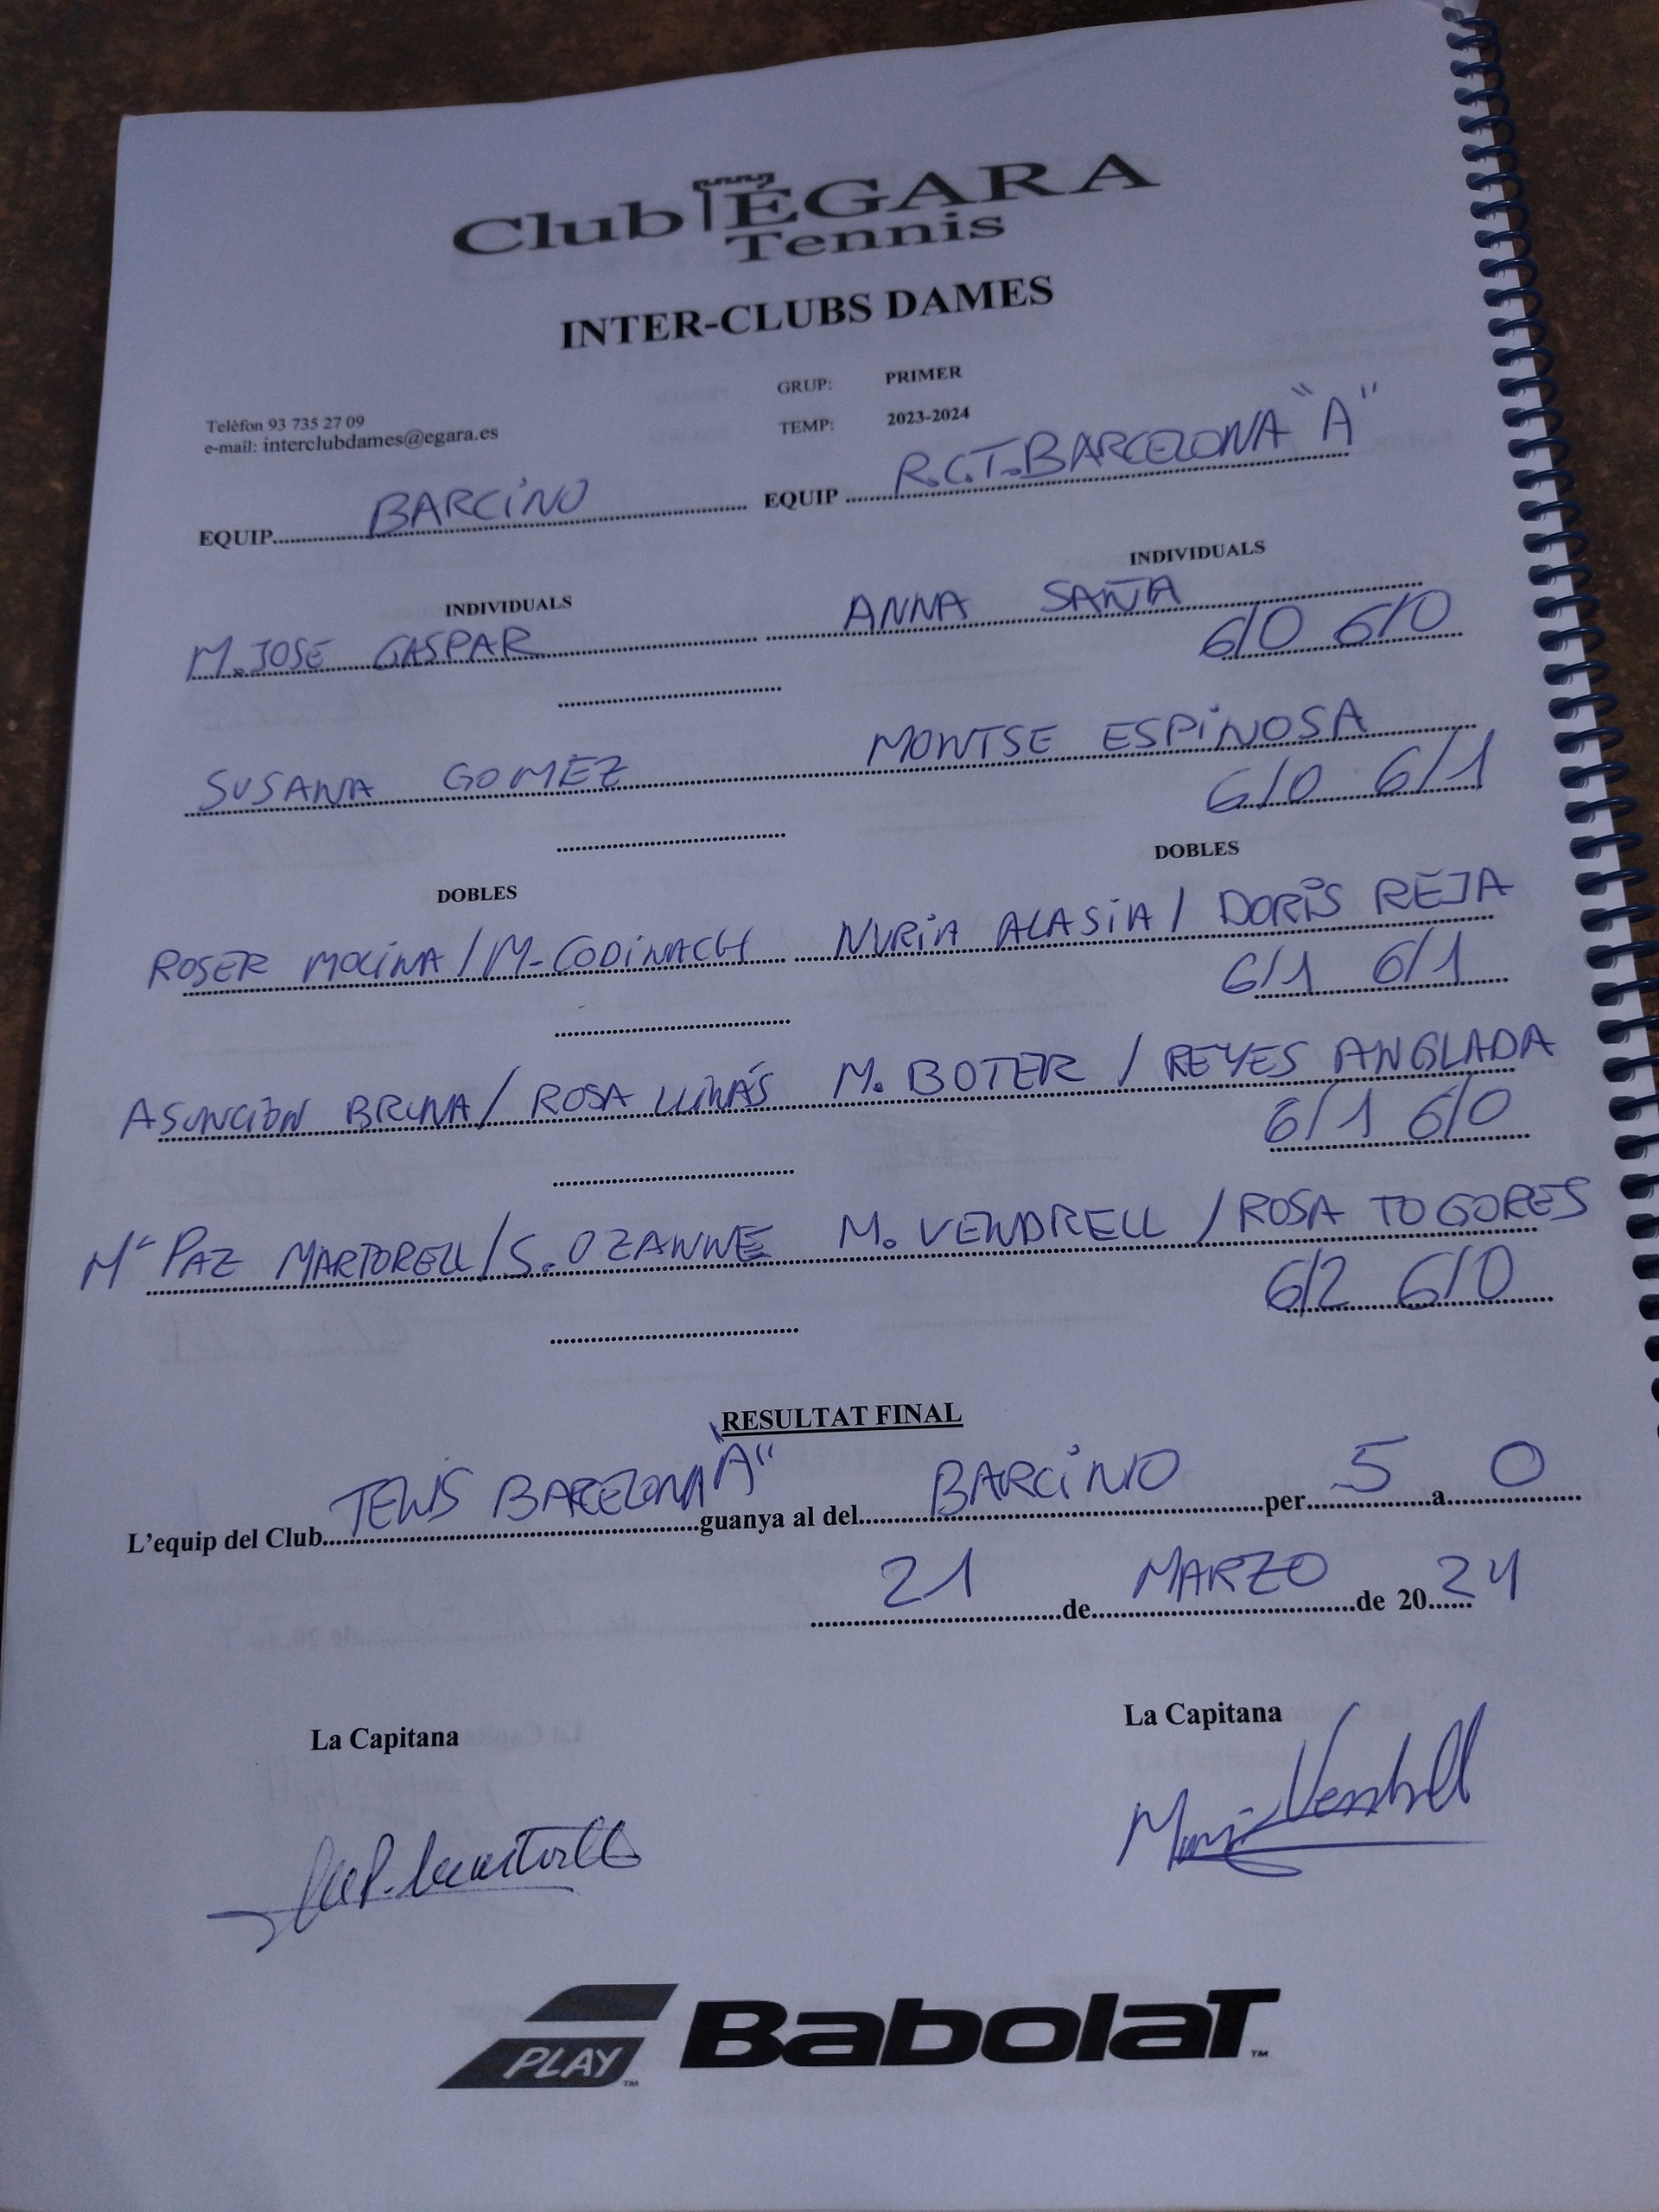 Club ÈGARA
Tennis
INTER-CLUBS DAMES
GRUP: PRIMER
Telèfon 93 735 27 09
TEMP: 2023-2024
e-mail: interclubdames@egara.es
EQUIP BARCINO EQUIP R.C.T. BARCELONA "A"
INDIVIDUALS INDIVIDUALS
M. JOSE GASPAR ANNA SANTA
6/0 6/0
SUSANA GOMEZ MONTSE ESPINOSA
6/0 6/1
DOBLES DOBLES
ROSER MOLINA / M. CODINACH NURIA ALASIA / DORIS REJA
6/1 6/1
ASUNCION BRUNA / ROSA LLINÁS M. BOTER / REYES ANGLADA
6/1 6/0
Mª PAZ MARTORELL / S. OZANNE M. VENDRELL / ROSA TOGORES
6/2 6/0
RESULTAT FINAL
L'equip del Club TENIS BARCELONA "A" guanya al del BARCINO per 5 a 0
21 de MARZO de 2024
La Capitana La Capitana
Vendrell
PLAY™ BabolaT™